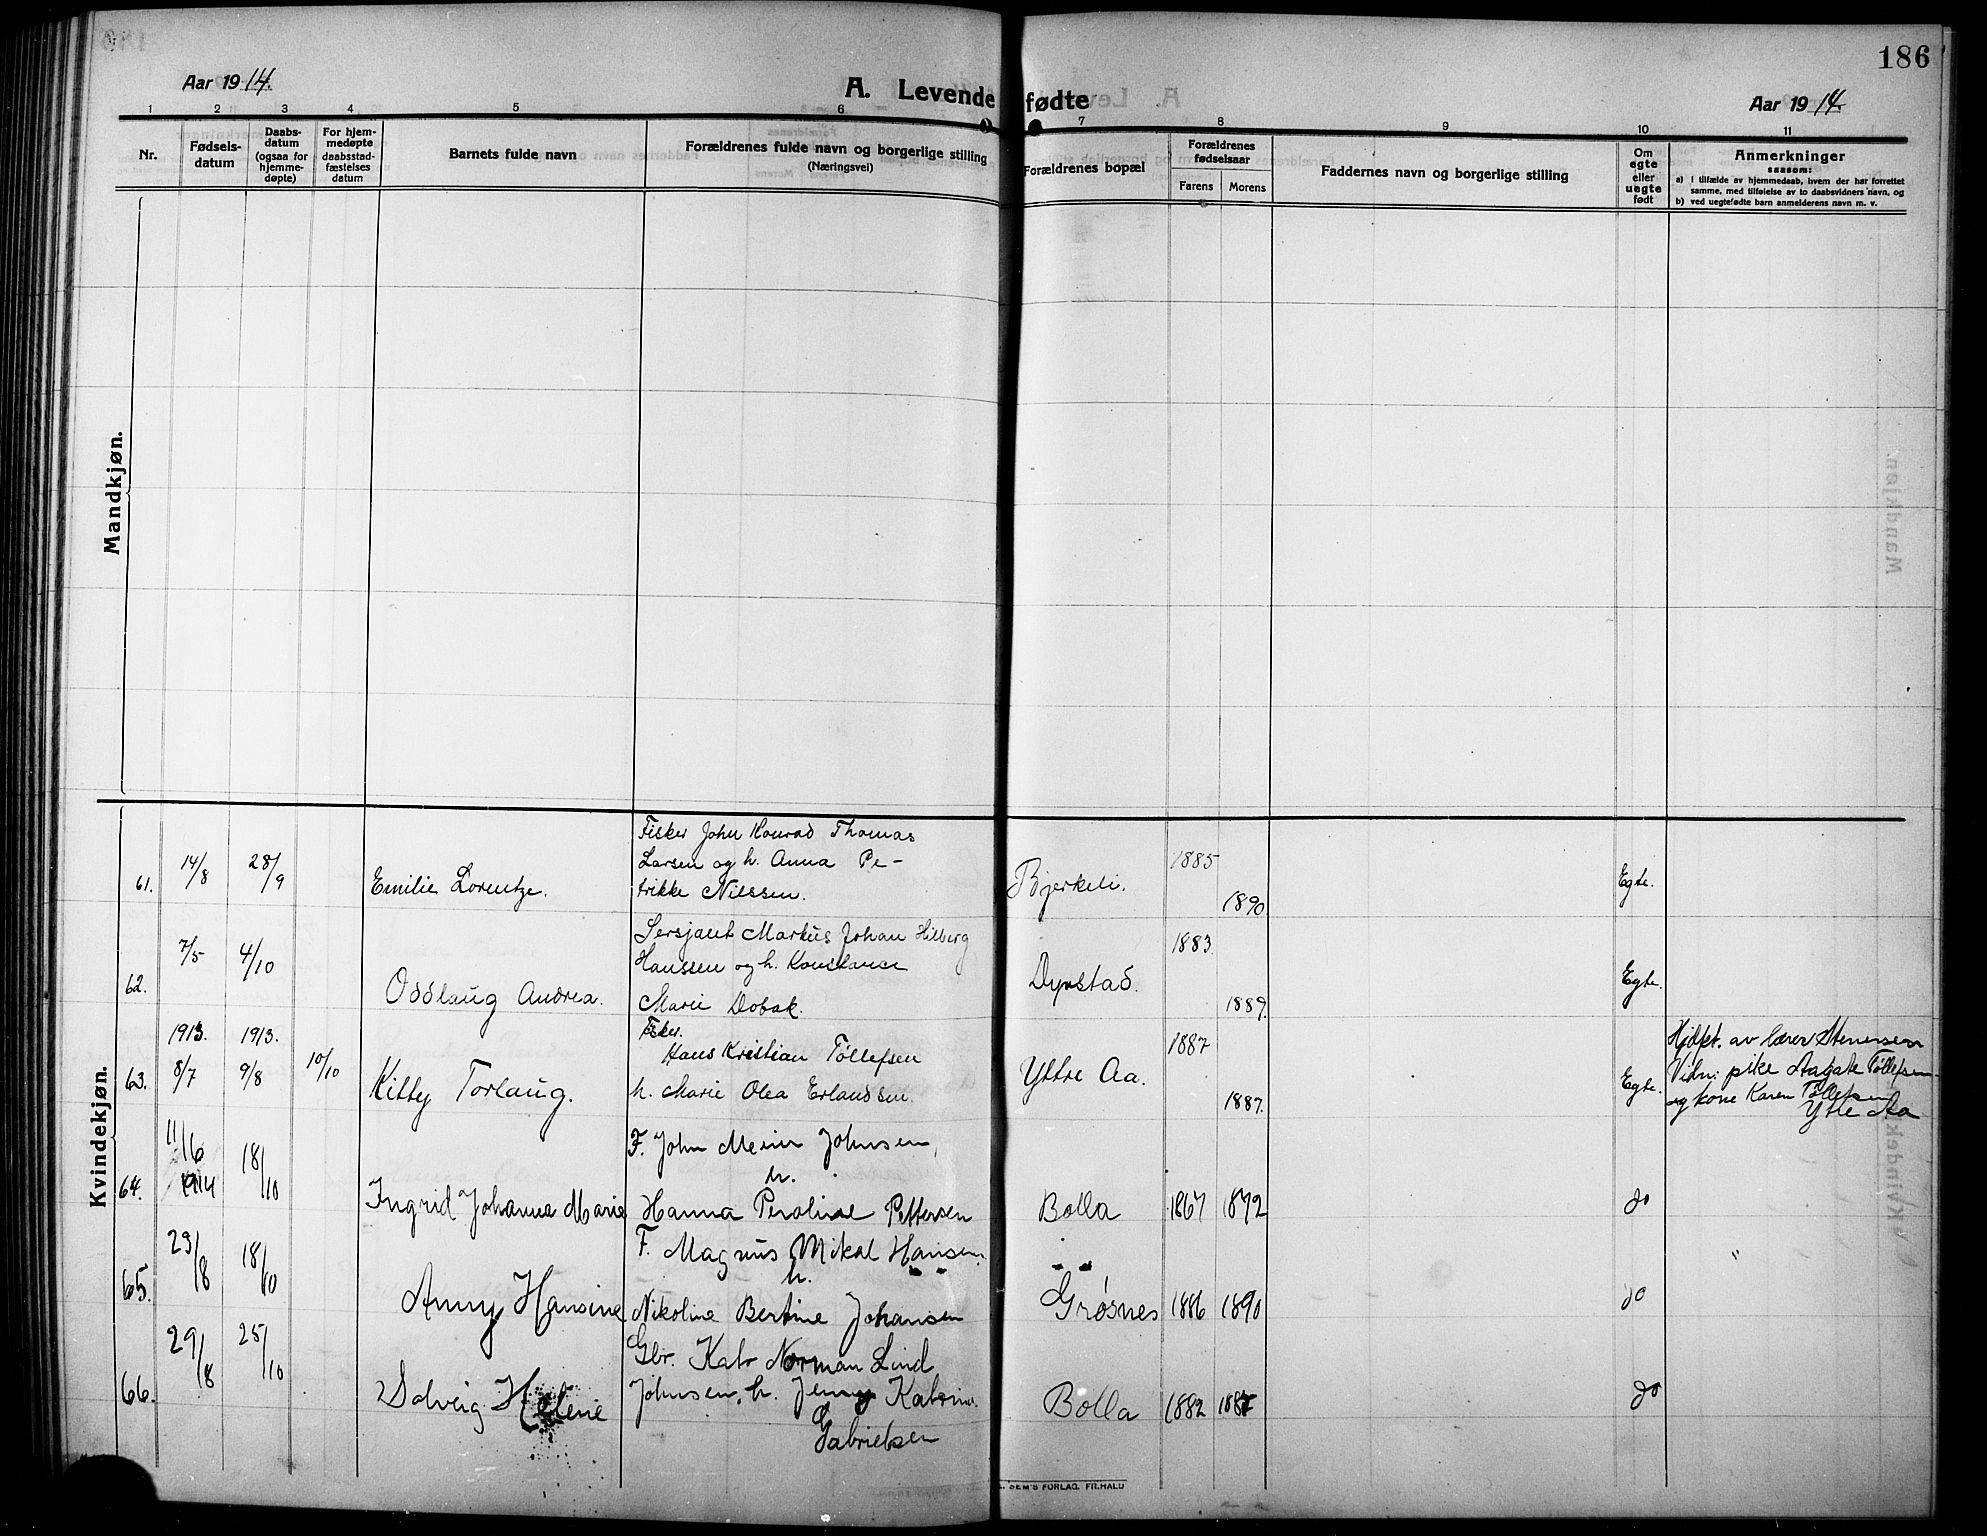 186
Aar 1914.
A. Levende fødte
Aar 1914.
1 2 3 4 5 6 7 8 9 10 11
Nr.
Fødsels-
datum
Daabs-
datum
(ogsaa for
hjemme-
døpte)
For hjem-
medøpte
daabsstad-
fæstelses
datum
Barnets fulde navn
Forældrenes fulde navn og borgerlige stilling
(Næringsvei)
Forældrenes bopæl
Forældrenes
fødselsaar
Farens
Morens
Faddernes navn og borgerlige stilling
Om
egte
eller
uegte
født
Anmerkninger
saasom:
a) i tilfælde av hjemmedaab, hvem der har forrettet
samme, med tilføielse av to daabsvidners navn, og
b) ved uegtefødte barn anmelderens navn m. v.
Mandkjøn.
Kvindekjøn.
61. 14/8 28/9 Emilie Lorentze.
Fisker John Konrad Thomas
Larsen og h. Anna Pe-
trikke Nilssen.
Bjerkeli. 1885 1890. Egte.
62. 7/5 4/10 Oddlaug Andrea.
Sersjant Markus Johan Hilberg
Hanssen og h. Konstance
Marie Dobak.
Dyrstad. 1883. 1889. Egte.
63. 1913. 8/7 1913. 9/8 10/10 Kitty Torlaug.
Fisker.
Hans Kristian Tøllefsen
h. Marie Olea Erlandsen
Yttre Aa. 1887 1887. Egte.
Hjdpt. av lærer Stenersen
Vidn: pike Aagate Tøllefsen
og kone Karen Tøllefsen
Ytre Aa
64. 11/6 1914 18/10 Ingrid Johanna Marie
F. John Meier Johnsen,
h.
Hanna Peroline Pettersen
Bolla 1867 1872 do
65. 23/8 18/10 Anny Hansine
F. Magnus Mikal Hansen.
h.
Nikoline Bertine Johansen
Grøsnes 1886 1890 do
"
66. 29/8 25/10 Solveig Helene
Gbr. Kabr Norman Lind
Johnsen, h. Jenny Katrine
Gabrielsen
Bolla 1882 1887 do
SEM'S FORLAG. FR.HALD